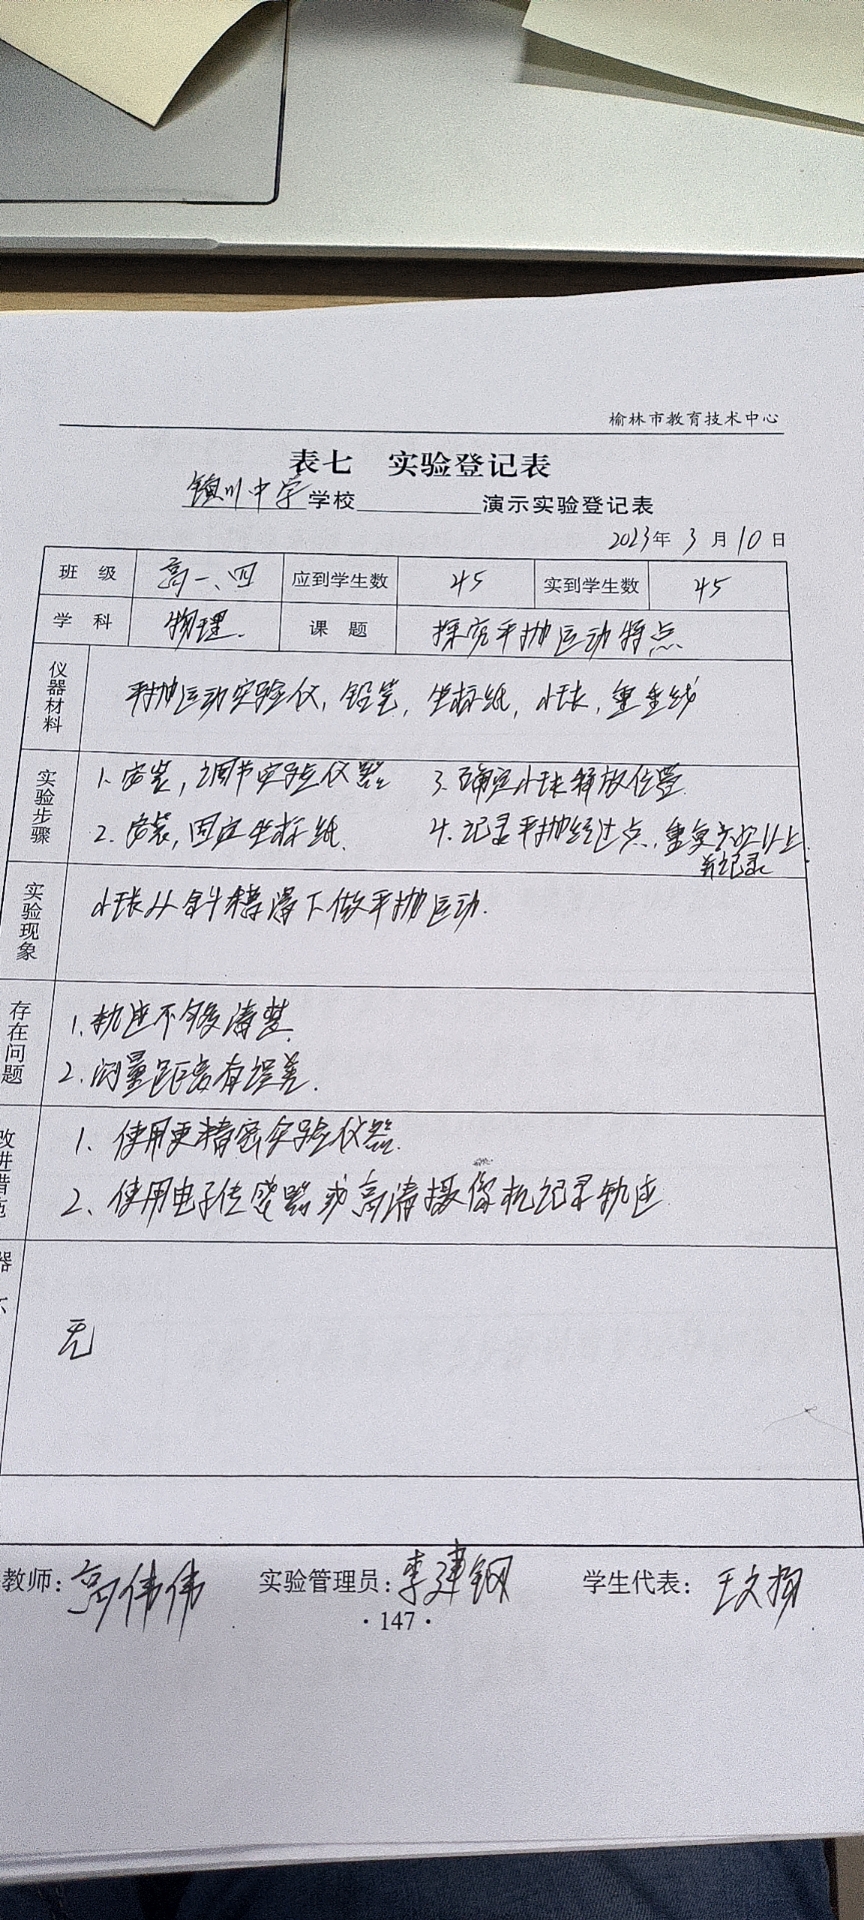 榆林市教育技术中心
表七 实验登记表
镇川中学学校 演示实验登记表
2023年 3月10日
班 级 高一、四 应到学生数 45 实到学生数 45
学 科 物理. 课 题 探究平抛运动特点
仪器材料 平抛运动实验仪, 铅笔, 坐标纸, 小球, 重垂线
实验步骤 1. 安装, 调节实验仪器 3. 确定小球释放位置.
2. 安装, 固定坐标纸. 4. 记录平抛经过点, 重复以上
并记录
实验现象 小球从斜槽滑下做平抛运动.
存在问题 1. 轨迹不够清楚
2. 测量距离有误差.
改进措施 1. 使用更精密实验仪器.
2. 使用电子传感器或高清摄像机记录轨迹
器
无
教师: 高伟伟 实验管理员: 李建钢 学生代表: 王文
·147·